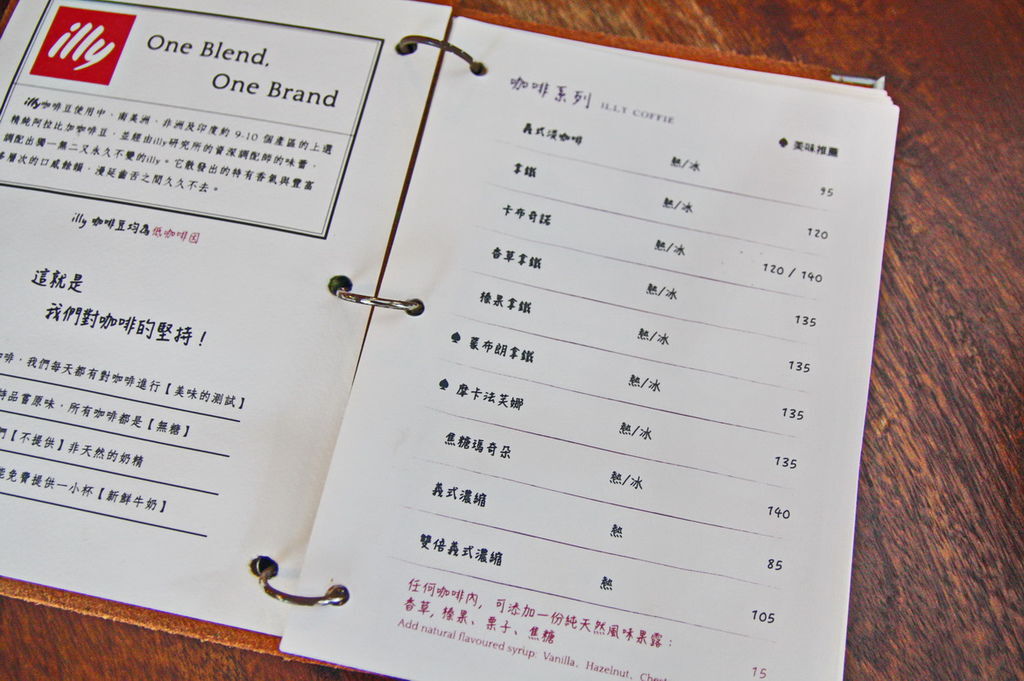 illy
One Blend,
One Brand
illy咖啡豆使用中、南美洲、非洲及印度約 9-10 個產區的上選
精純阿拉比加咖啡豆，並經由illy研究所的資深調配師的味蕾，
調配出獨一無二又永久不變的illy。它散發出的特有香氣與豐富
多層次的口感餘韻，漫延齒舌之間久久不去。
illy 咖啡豆均為低咖啡因
這就是
我們對咖啡的堅持！
啡，我們每天都有對咖啡進行【美味的測試】
品嘗原味，所有咖啡都是【無糖】
們【不提供】非天然的奶精
免費提供一小杯【新鮮牛奶】
咖啡系列 ILLY COFFIE
♠ 美味推薦
義式淡咖啡 熱/冰 95
拿鐵 熱/冰 120
卡布奇諾 熱/冰 120 / 140
香草拿鐵 熱/冰 135
榛果拿鐵 熱/冰 135
♠ 蒙布朗拿鐵 熱/冰 135
♠ 摩卡法芙娜 熱/冰 135
焦糖瑪奇朵 熱/冰 140
義式濃縮 熱 85
雙倍義式濃縮 熱 105
任何咖啡內，可添加一份純天然風味果露：
香草，榛果、栗子、焦糖 15
Add natural flavoured syrup: Vanilla、Hazelnut、